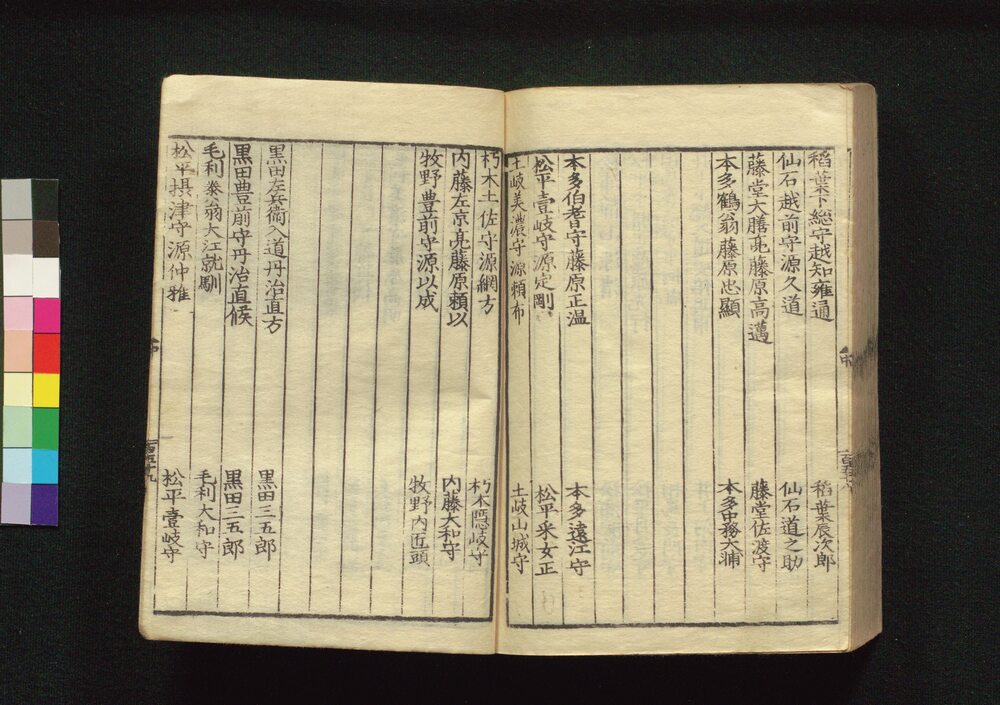 稻葉下総守越知雍通　稻葉辰次郎
仙石越前守源久道　仙石道之助
藤堂大膳亮藤原高邁　藤堂佐渡守
本多鶴翁藤原忠顯　本多中務大輔
本多伯耆守藤原正温　本多遠江守
松平壹岐守源定剛　松平采女正
土岐美濃守源頼布　土岐山城守
朽木土佐守源綱方　朽木隠岐守
内藤左京亮藤原頼以　内藤大和守
牧野豊前守源以成　牧野内匠頭
黒田左兵衛入道丹治直方　黒田三五郎
黒田豊前守丹治直候　黒田三五郎
毛利泰翁大江就馴　毛利大和守
松平摂津守源仲雅　松平壹岐守
百五十九